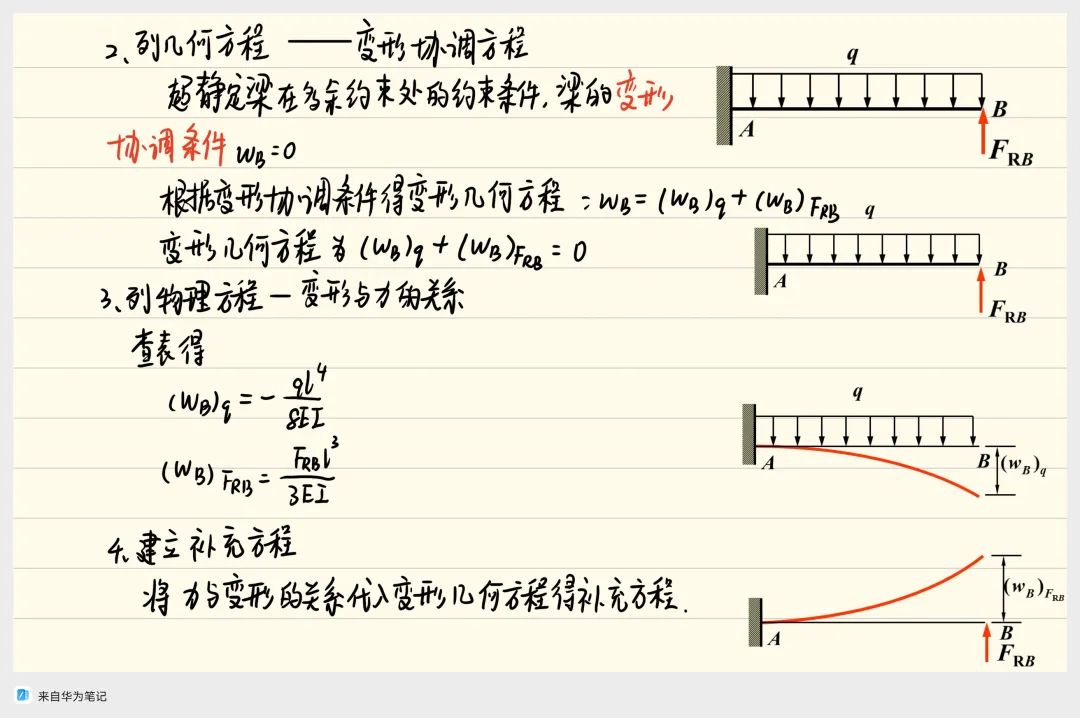 2、列几何方程 —— 变形协调方程
超静定梁在多余约束处的约束条件,梁的变形
协调条件 wB=0
根据变形协调条件得变形几何方程:wB=(wB)q+(wB)FRB
变形几何方程为(wB)q+(wB)FRB=0
3、列物理方程—变形与力的关系
查表得
(wB)q=-ql⁴/8EI
(wB)FRB=FRBl³/3EI
4、建立补充方程
将力与变形的关系代入变形几何方程得补充方程.
q
A
B
FRB
q
A
B
FRB
q
A
B
(wB)q
(wB)FRB
A
B
FRB
来自华为笔记